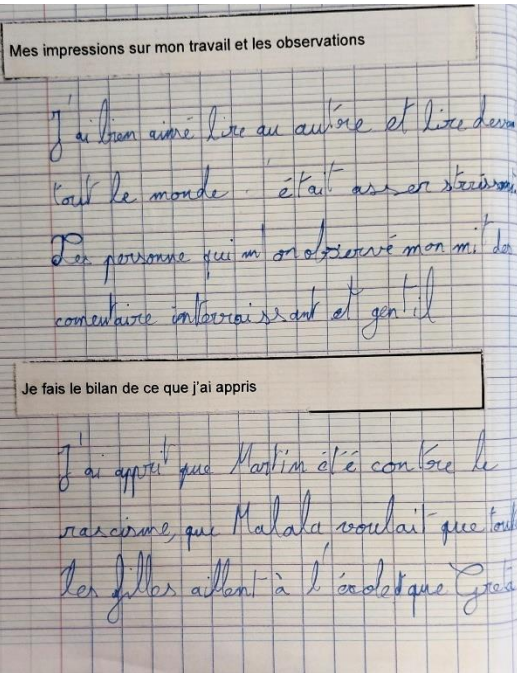 Mes impressions sur mon travail et les observations
J'ai bien aimé lire au autre et lire devan
tout le monde. C'était asser stressant.
Les personne qui m'on observé mon mi des
comentaire interraissant et gentil
Je fais le bilan de ce que j'ai appris
J'ai apprit que Martin été contre le
rascisme, que Malala voulait que tout
les filles aillent à l'école et que Greta